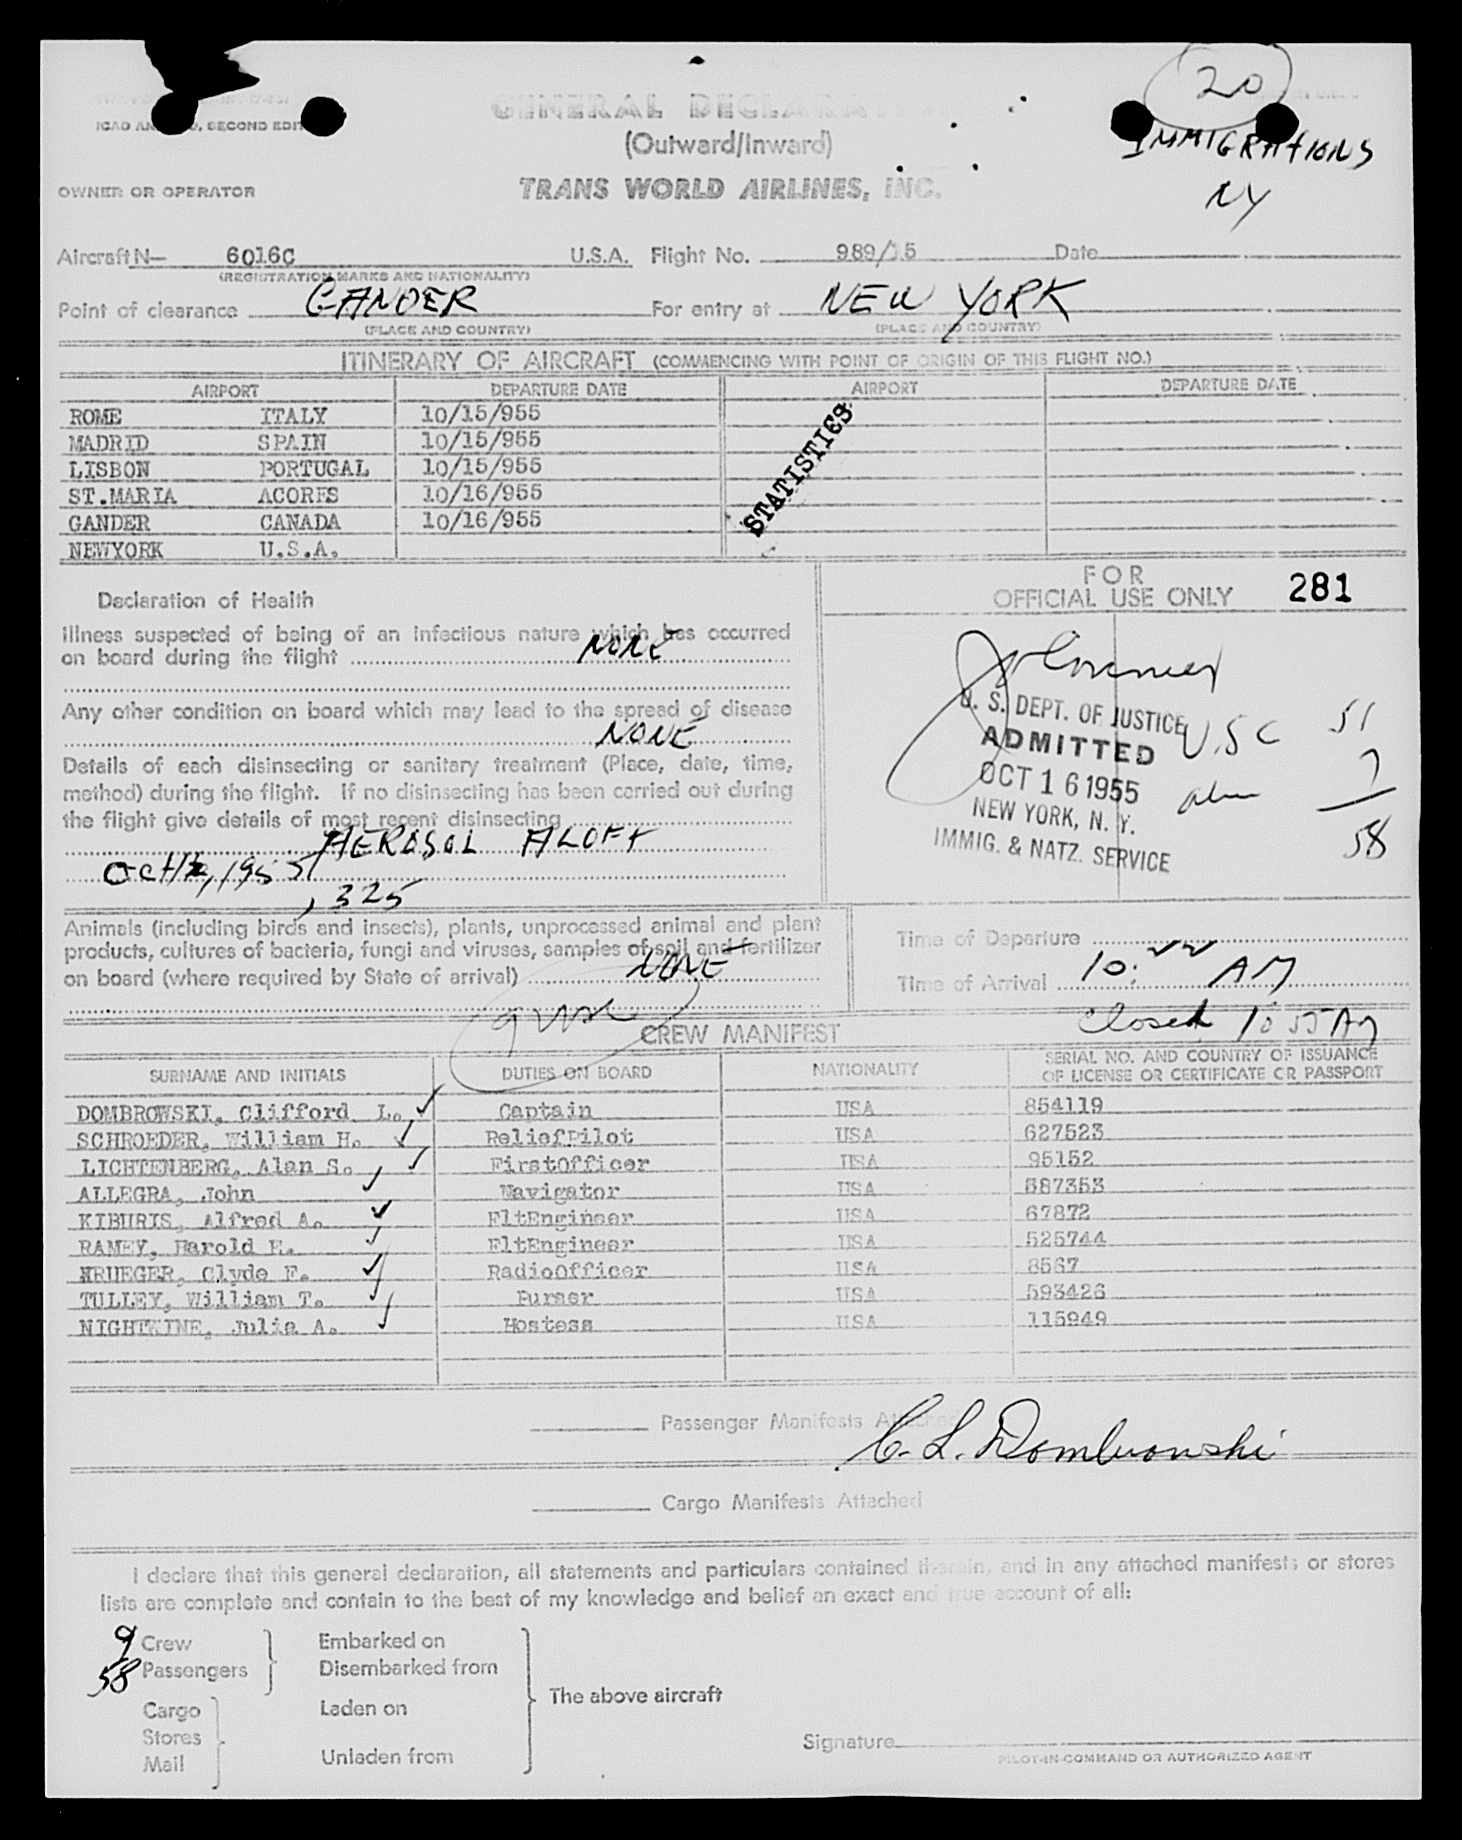 20
ICAO AN , SECOND EDIT
GENERAL DECLARATION
(Outward/Inward)
IMMIGRATIONS
NY
OWNER OR OPERATOR TRANS WORLD AIRLINES, INC.
Aircraft N— 6016C U.S.A. Flight No. 989/15 Date
(REGISTRATION MARKS AND NATIONALITY)
Point of clearance GANDER For entry at NEW YORK
(PLACE AND COUNTRY) (PLACE AND COUNTRY)
ITINERARY OF AIRCRAFT (COMMENCING WITH POINT OF ORIGIN OF THIS FLIGHT NO.)
AIRPORT DEPARTURE DATE AIRPORT DEPARTURE DATE
ROME ITALY 10/15/955
MADRID SPAIN 10/15/955
LISBON PORTUGAL 10/15/955
ST.MARIA ACORES 10/16/955
GANDER CANADA 10/16/955
NEWYORK U.S.A.
STATISTICS
FOR
OFFICIAL USE ONLY 281
Declaration of Health
Illness suspected of being of an infectious nature which has occurred
on board during the flight NONE
Any other condition on board which may lead to the spread of disease
NONE
Details of each disinsecting or sanitary treatment (Place, date, time,
method) during the flight. If no disinsecting has been carried out during
the flight give details of most recent disinsecting
AEROSOL ALOFT
Oct 1955
325
U. S. DEPT. OF JUSTICE
ADMITTED
OCT 16 1955
NEW YORK, N. Y.
IMMIG. & NATZ. SERVICE
U.S C 51
7
58
Animals (including birds and insects), plants, unprocessed animal and plant
products, cultures of bacteria, fungi and viruses, samples of soil and fertilizer
on board (where required by State of arrival) NONE
Time of Departure
Time of Arrival 10: AM
Closed 10 55 AM
CREW MANIFEST
SURNAME AND INITIALS DUTIES ON BOARD NATIONALITY SERIAL NO. AND COUNTRY OF ISSUANCE
OF LICENSE OR CERTIFICATE OR PASSPORT
DOMBROWSKI, Clifford L. Captain USA 854119
SCHROEDER, William H. ReliefPilot USA 627523
LICHTENBERG, Alan S. FirstOfficer USA 95152
ALLEGRA, John Navigator USA 587353
KIBURIS, Alfred A. FltEngineer USA 67872
RAMEY, Harold E. FltEngineer USA 525744
KRUEGER, Clyde F. RadioOfficer USA 8567
TULLEY, William T. Purser USA 593426
NIGHTWINE, Julia A. Hostess USA 115949
Passenger Manifests Attached
C. L. Dombrowski
Cargo Manifests Attached
I declare that this general declaration, all statements and particulars contained therein, and in any attached manifests or stores
lists are complete and contain to the best of my knowledge and belief an exact and true account of all:
9 Crew Embarked on
58 Passengers Disembarked from
The above aircraft
Cargo Laden on
Stores
Mail Unladen from
Signature
PILOT-IN-COMMAND OR AUTHORIZED AGENT